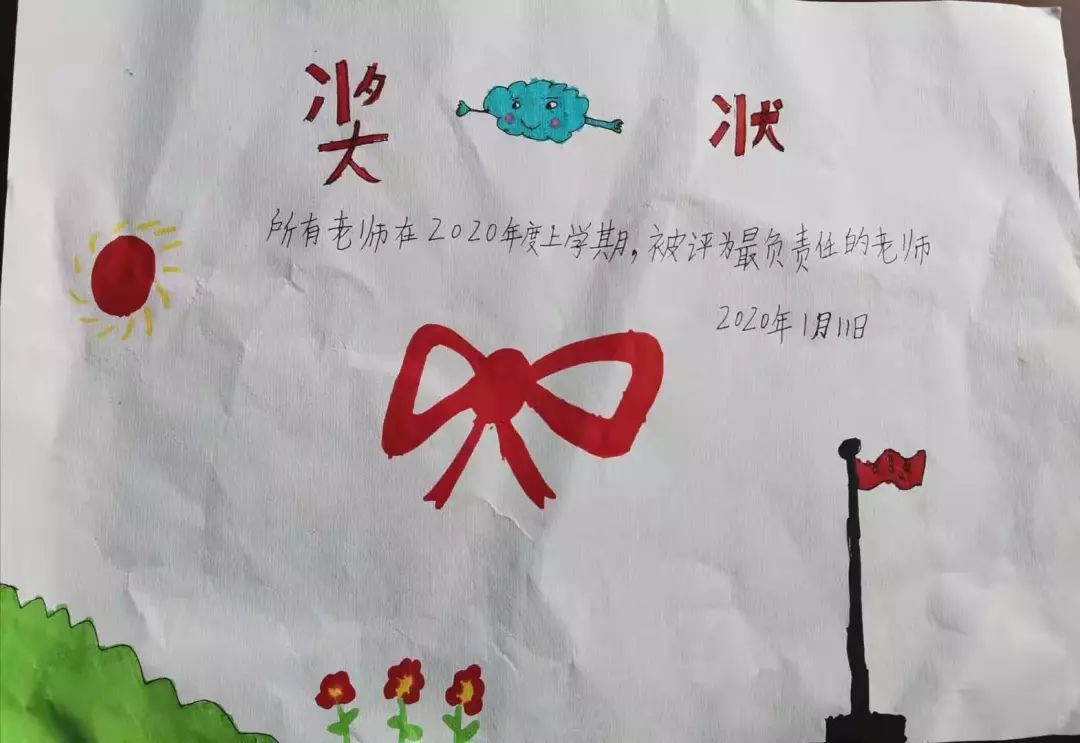 奖状
所有老师在2020年度上学期,被评为最负责任的老师
2020年1月11日